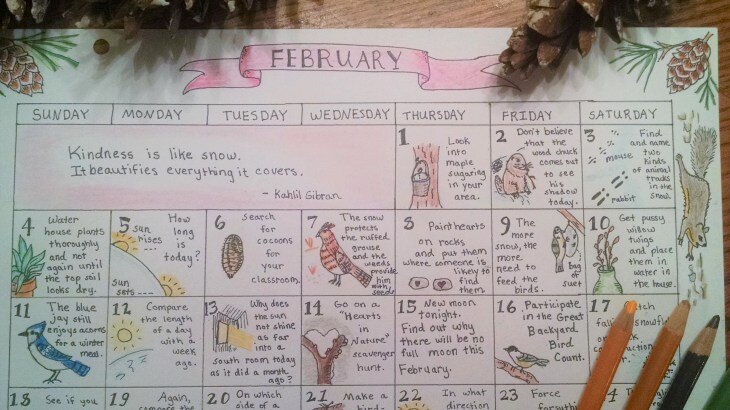 FEBRUARY
SUNDAY MONDAY TUESDAY WEDNESDAY THURSDAY FRIDAY SATURDAY
Kindness is like snow.
It beautifies everything it covers.
- Kahlil Gibran
1 Look
into
maple
sugaring
in your
area.
2 Don't believe
that the
wood chuck
comes out
to see
his
shadow
today.
3 Find
and name
two
kinds
of animal
tracks
in the
snow.
mouse
rabbit
4 Water
house plants
thoroughly
and not
again until
the top soil
looks dry.
5 How
long is
today?
sun
rises
sun
sets
6 Search
for
cocoons
for
your
classroom.
7 The snow
protects
the ruffed
grouse
and the
weeds
provide
him
with seeds.
8 Paint hearts
on rocks
and put them
where someone is
likely to
find them.
9 The
more
snow, the
more
need to
feed the
birds.
bag
of
suet
10 Get pussy
willow
twigs
and place
them in
water in
the house.
11 The blue
jay still
enjoys acorns
for a winter
meal.
12 Compare
the length
of a day
with a
week
ago.
13 Why does
the sun
not shine
as far
into a
south room today
as it did a month
ago?
14 Go on a
"Hearts
in
Nature"
scavenger
hunt.
15 New moon
tonight.
Find out why
there will be no
full moon this
February.
16 Participate
in the Great
Backyard
Bird
Count.
17
18 See if you
19 Again,
compare the
20 On which
side of a
21 Make a
bird-
22 In what
direction
23 Force
24